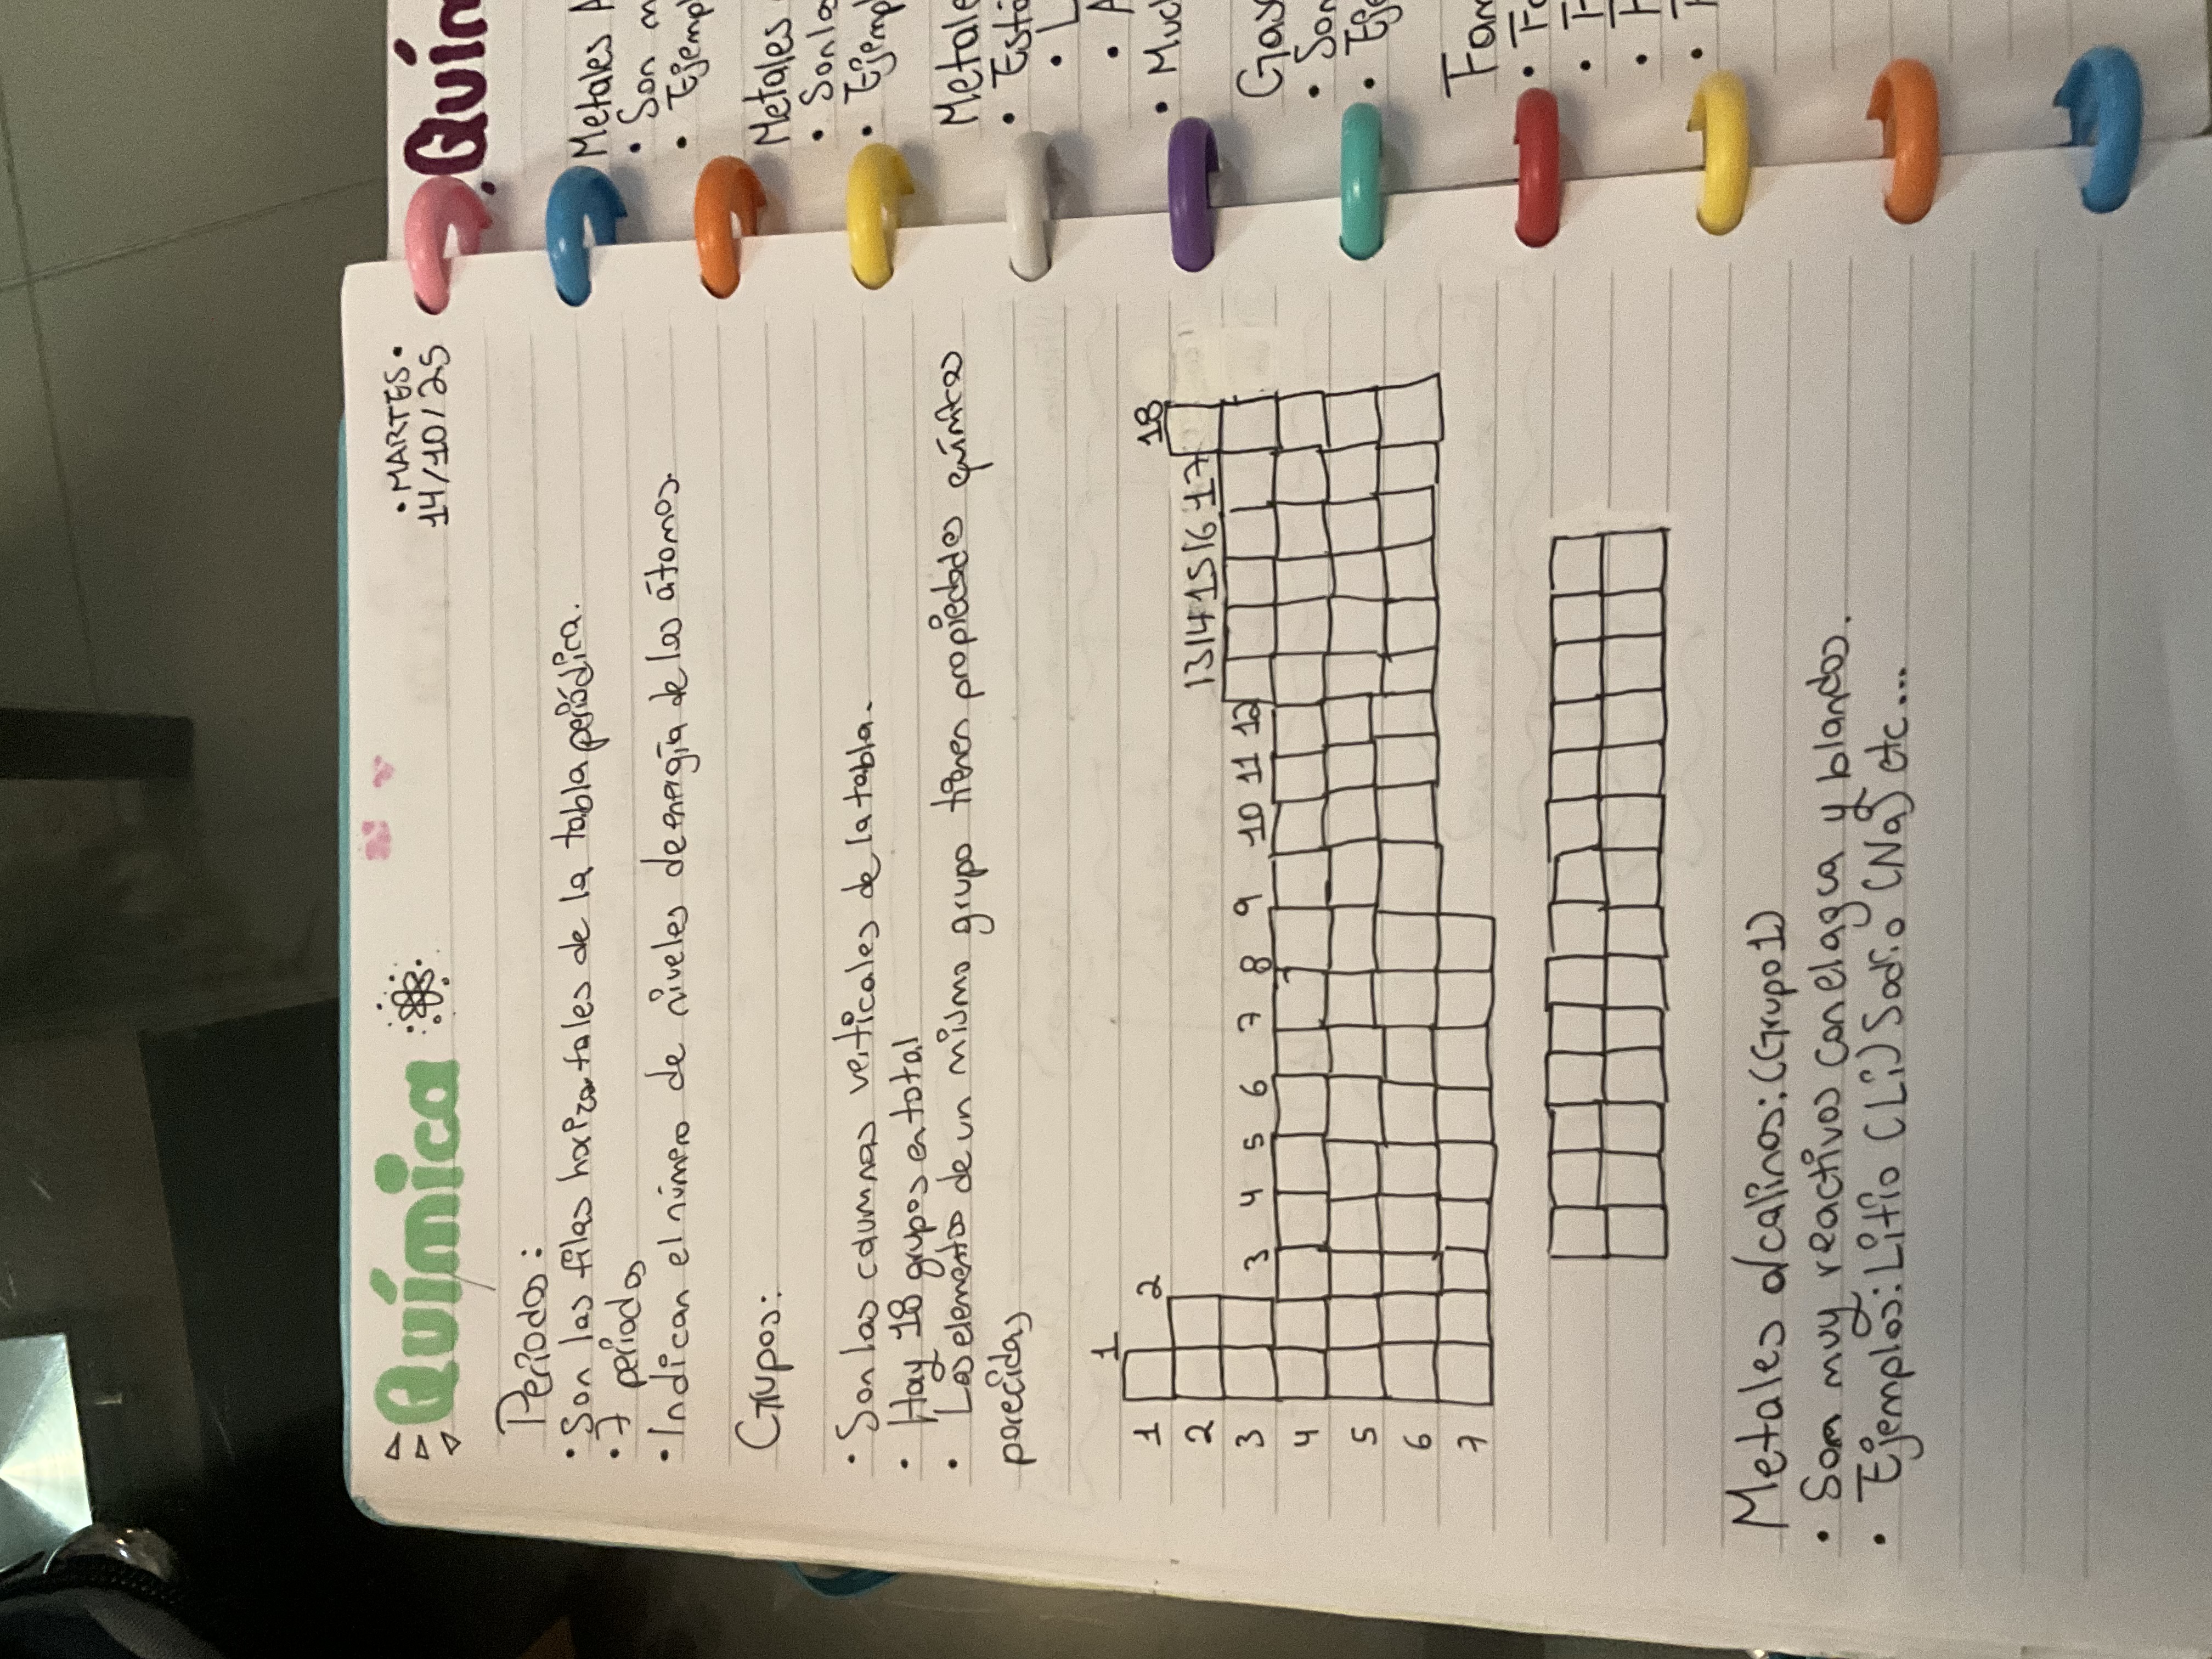 Química
• MARTES •
14/10/25
Periodos:
• Son las filas horizontales de la tabla periódica.
• 7 periodos
• Indican el número de niveles de energía de los átomos.
Grupos:
• Son las columnas verticales de la tabla.
• Hay 18 grupos en total
• Los elementos de un mismo grupo tienen propiedades químicas
parecidas
1
2
18
13 14 15 16 17
3 4 5 6 7 8 9 10 11 12
1
2
3
4
5
6
7
Metales alcalinos: (Grupo 1)
• Son muy reactivos con el agua y blandos.
• Ejemplos: Litio (Li) Sodio (Na) etc...
Quím
Metales A
• Son m
• Ejempl
Metales
• Son lo
• Ejempl
Metale
• Está
• L
• A
• Muc
Gas
• Son
• Eje
Fam